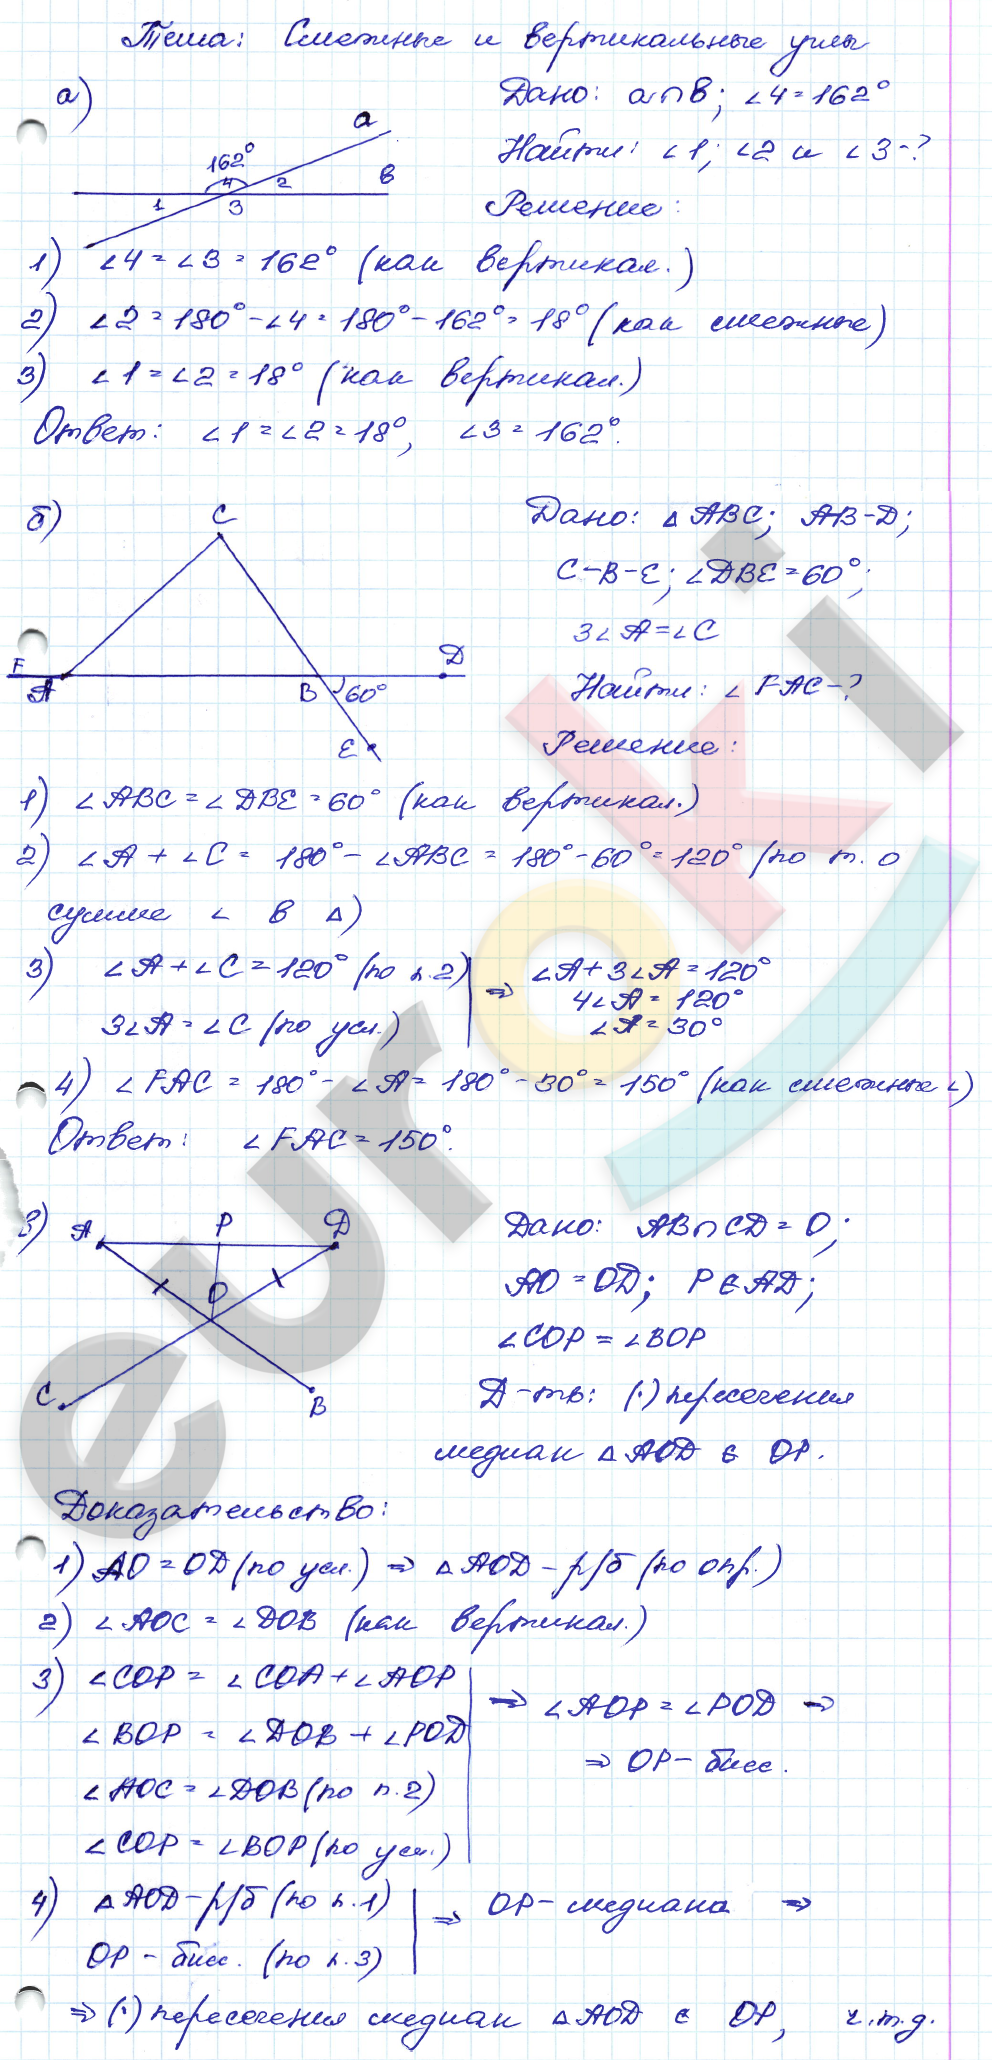 Тема: Смежные и вертикальные углы
а)
Дано: a∩b; ∠4=162°
a
162°
4
2
b
1
3
Найти: ∠1; ∠2 и ∠3-?
Решение:
1) ∠4=∠3=162° (как вертикал.)
2) ∠2=180°-∠4=180°-162°=18° (как смежные)
3) ∠1=∠2=18° (как вертикал.)
Ответ: ∠1=∠2=18°, ∠3=162°.
б)
C
F
A
B
60°
D
E
Дано: △ABC; AB-D;
C-B-E; ∠DBE=60°;
3∠A=∠C
Найти: ∠FAC-?
Решение:
1) ∠ABC=∠DBE=60° (как вертикал.)
2) ∠A+∠C= 180°-∠ABC=180°-60°=120° (по т. о
сумме ∠ в △)
3) ∠A+∠C=120° (по п.2) ⇒ ∠A+3∠A=120°
4∠A=120°
3∠A=∠C (по усл.) ∠A=30°
4) ∠FAC=180°-∠A=180°-30°=150° (как смежные ∠)
Ответ: ∠FAC=150°.
в)
A
P
D
O
C
B
Дано: AB∩CD=O;
AO=OD; P∈AD;
∠COP=∠BOP
Д-ть: (·) пересечения
медиан △AOD ∈ OP.
Доказательство:
1) AO=OD (по усл.) ⇒ △AOD-р/б (по опр.)
2) ∠AOC=∠DOB (как вертикал.)
3) ∠COP=∠COA+∠AOP
⇒ ∠AOP=∠POD ⇒
∠BOP=∠DOB+∠POD
⇒ OP-бисс.
∠AOC=∠DOB (по п.2)
∠COP=∠BOP (по усл.)
4) △AOD-р/б (по п.1) ⇒ OP-медиана ⇒
OP-бисс. (по п.3)
⇒ (·) пересечения медиан △AOD ∈ OP, ч.т.д.
euroki